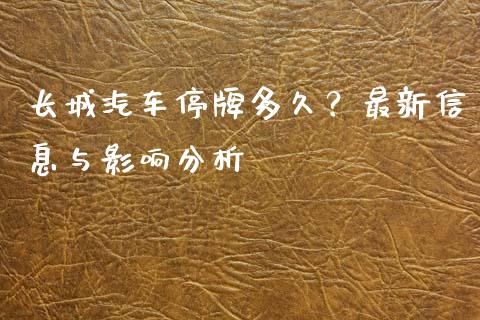 长城汽车停牌多久？最新信
息与影响分析